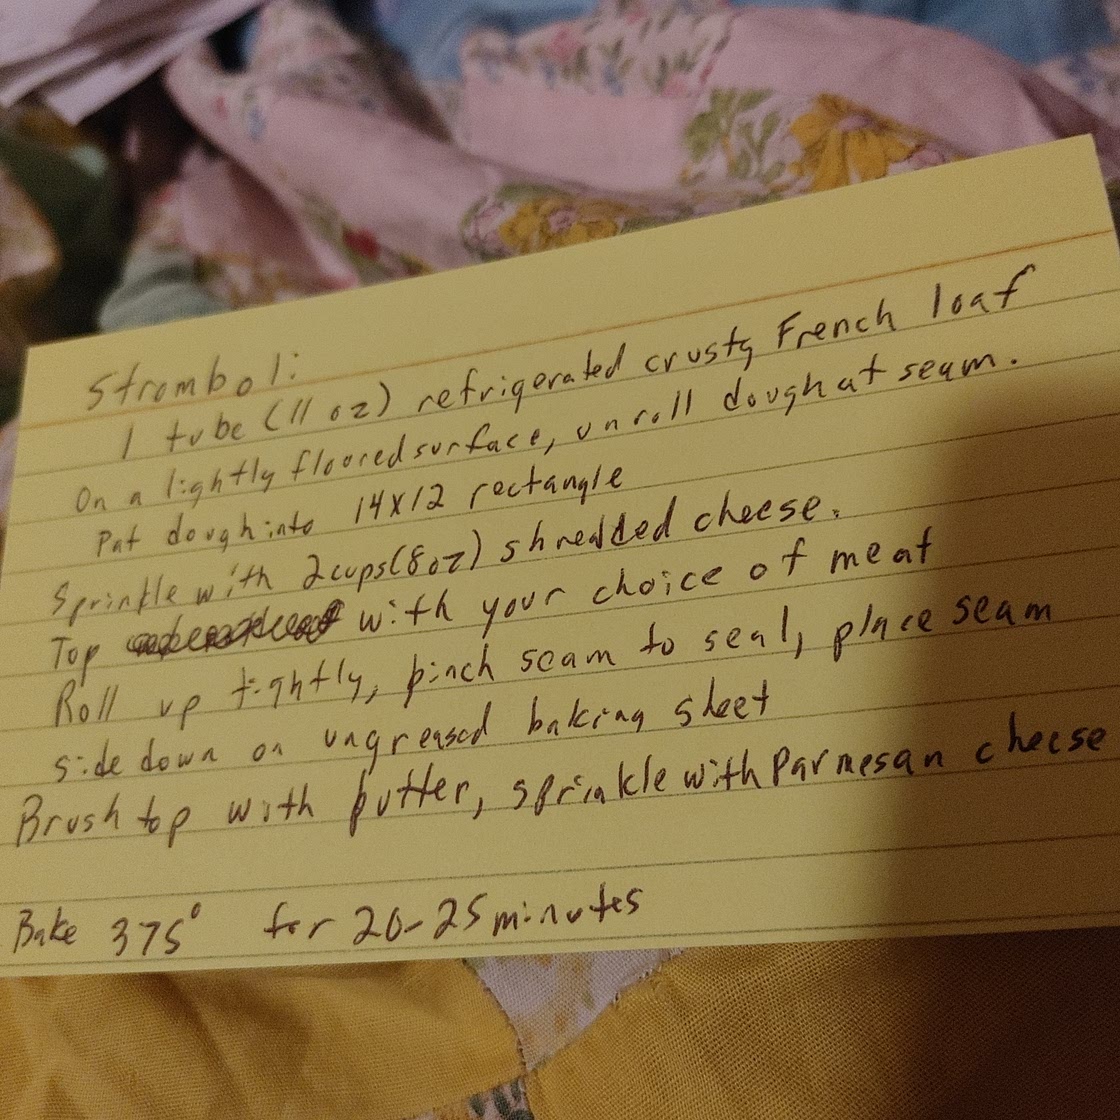 Stromboli
1 tube (11 oz) refrigerated crusty French loaf
On a lightly floored surface, unroll dough at seam.
Pat dough into 14x12 rectangle
Sprinkle with 2 cups (8oz) shredded cheese.
Top with your choice of meat
Roll up tightly, pinch seam to seal, place seam
side down on ungreased baking sheet
Brush top with butter, sprinkle with Parmesan cheese
Bake 375° for 20-25 minutes